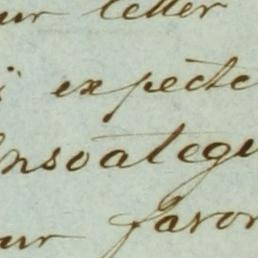 ur letter
expecte
nsoategu
ur favor